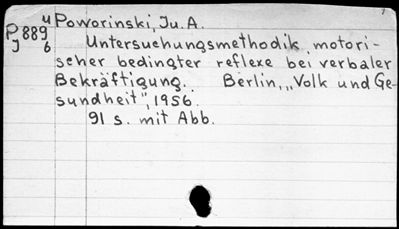 и Poworinski, Ju. A.
P889
J 6
Untersuchungsmethodik motori-
scher bedingter reflexe bei verbaler
Bekräftigung. Berlin, „Volk und Ge-
sundheit", 1956.
91 s. mit Abb.